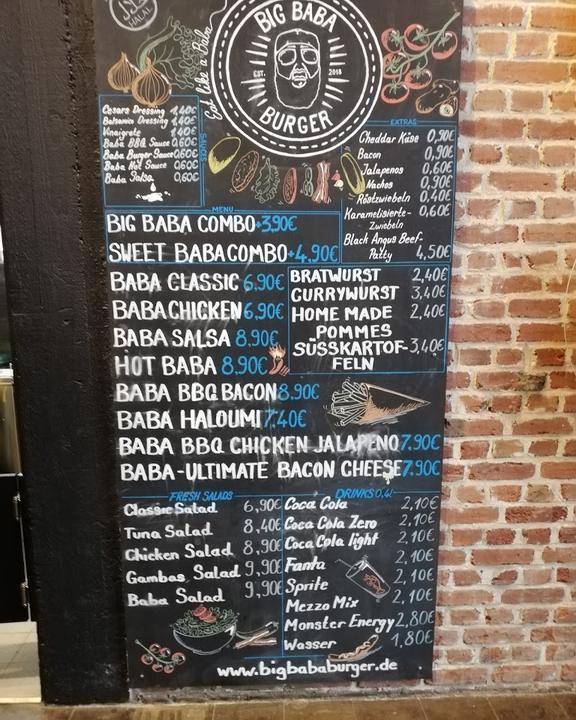 HALAL
Eat like a Baba
BIG BABA
EST. 2018
BURGER
Cesars Dressing 1,40€
Balsamico Dressing 1,40€
Vinaigrete 1,40€
Baba BBQ Sauce 0,60€
Baba Burger Sauce 0,60€
Baba Hot Sauce 0,60€
Baba Salsa 0,60€
SAUCES
EXTRAS
Cheddar Käse 0,90€
Bacon 0,90€
Jalapenos 0.60€
Nachos 0,90€
Röstzwiebeln 0,40€
Karamelisierte- 0,60€
Zwiebeln
Black Angus Beef-
Patty 4,50€
MENU
BIG BABA COMBO +3.90€
SWEET BABA COMBO +4.90€
BABA CLASSIC 6.90€
BABA CHICKEN 6.90€
BABA SALSA 8.90€
HOT BABA 8.90€
BABA BBQ BACON 8.90€
BABA HALOUMI 7.40€
BABA BBQ CHICKEN JALAPENO 7.90€
BABA-ULTIMATE BACON CHEESE 7.90€
BRATWURST 2,40€
CURRYWURST 3,40€
HOME MADE 2,40€
POMMES
SÜSSKARTOF- 3,40€
FELN
FRESH SALADS
Classic Salad 6,90€
Tuna Salad 8,40€
Chicken Salad 8,90€
Gambas Salad 9,90€
Baba Salad 9,90€
DRINKS 0,4l
Coca Cola 2,10€
Coca Cola Zero 2,10€
Coca Cola light 2,10€
Fanta 2,10€
Sprite 2,10€
Mezzo Mix 2,10€
Monster Energy 2,80€
Wasser 1,80€
www.bigbababurger.de